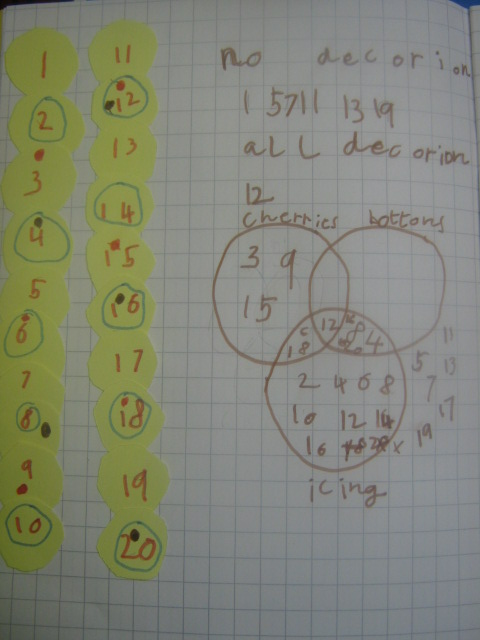 1
2
3
4
5
6
7
8
9
10
11
12
13
14
15
16
17
18
19
20
no decorion
1 5 7 11 13 19
all decorion
12
cherries bottons
3 9
15
6 12
18 4
2 4 6 8
10 12 14
16 18 x
11
5 13
7
17
19
icing